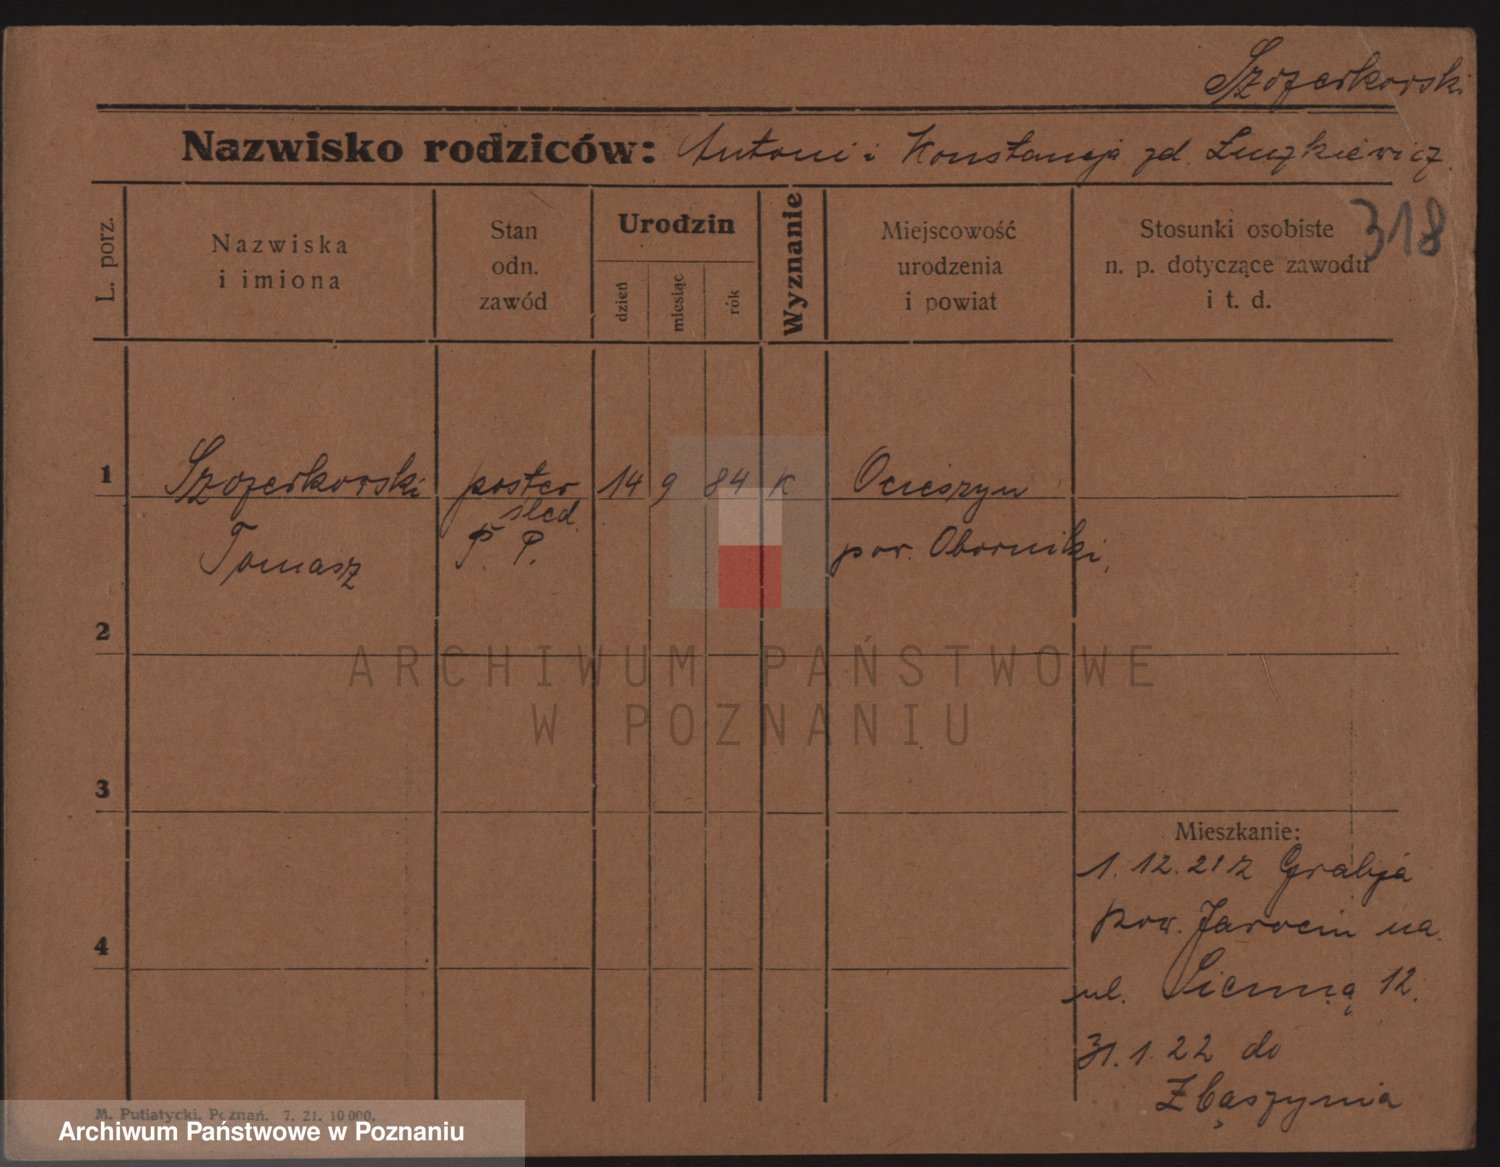 Szczerkowski
Nazwisko rodziców: Antoni i Konstancja zd.
318
L. porz.
Nazwiska
i imiona
Stan
odn.
zawód
Urodzin
dzień
miesiąc
rok
Wyznanie
Miejscowość
urodzenia
i powiat
Stosunki osobiste
n. p. dotyczące zawodu
i t. d.
1
Szczerkowski
Tomasz
poster
śled.
P. P.
14
9
84
K
Ocieszyn
pow. Oborniki,
2
3
4
Mieszkanie:
1. 12. 21 z
pow. Jarocin na
ul. Sienną 12.
31. 1. 22 do
Zbąszynia
M. Putiatycki, Poznań. 7. 21. 10 000.
ARCHIWUM PAŃSTWOWE
W POZNANIU
Archiwum Państwowe w Poznaniu